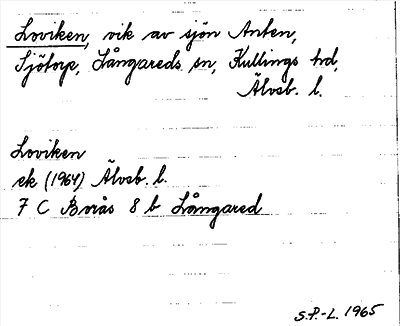 Loviken, vik av sjön Anten,
Sjötorp, Långareds sn, Kullings hd,
Älvsb. l.
Loviken
ek (1964) Älvsb. l.
7 C Borås 8 b Långared
S.P.-L. 1965